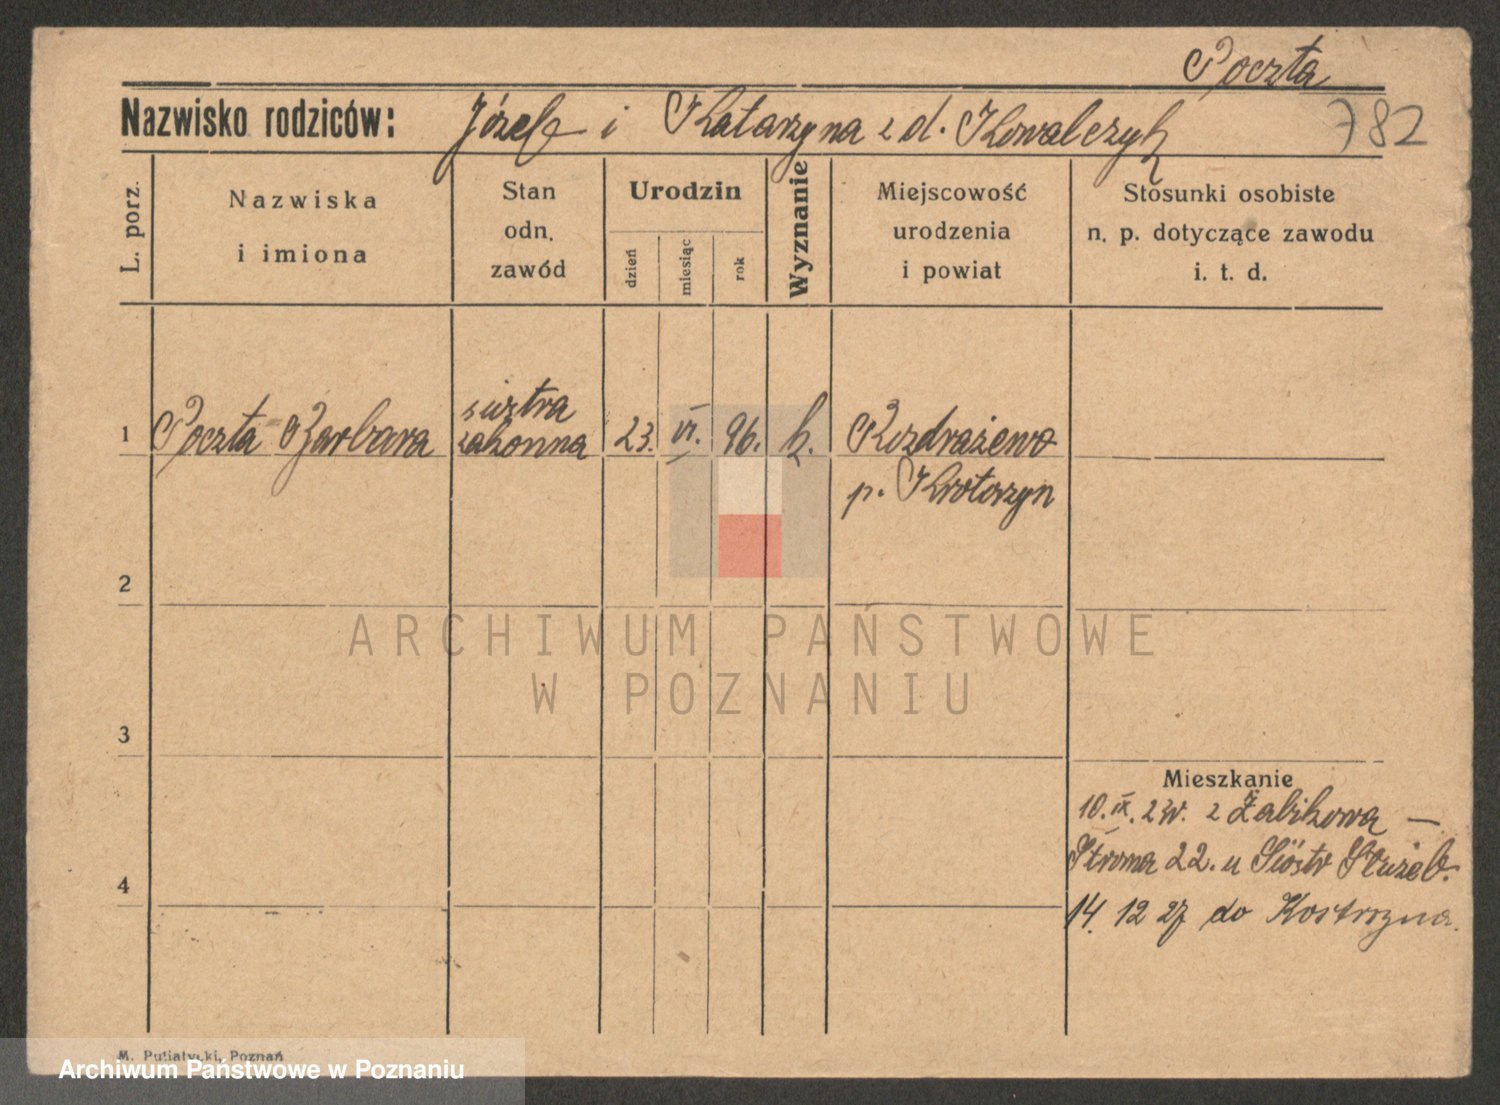 Poczta
782
Nazwisko rodziców: Józef i Katarzyna z d. Kowalczyk
L. porz.
Nazwiska
i imiona
Stan
odn.
zawód
Urodzin
dzień
miesiąc
rok
Wyznanie
Miejscowość
urodzenia
i powiat
Stosunki osobiste
n. p. dotyczące zawodu
i. t. d.
1 Poczta Barbara
siostra
zakonna
23. VI. 96. k. Rozdrażewo
p. Krotoszyn
2
3
4
Mieszkanie
10. IX. 2 w. z Żabikowa —
Stroma 22. u Sióstr Służeb.
14. 12 27 do Kostrzyna.
M. Putiatycki, Poznań
ARCHIWUM PAŃSTWOWE
W POZNANIU
Archiwum Państwowe w Poznaniu